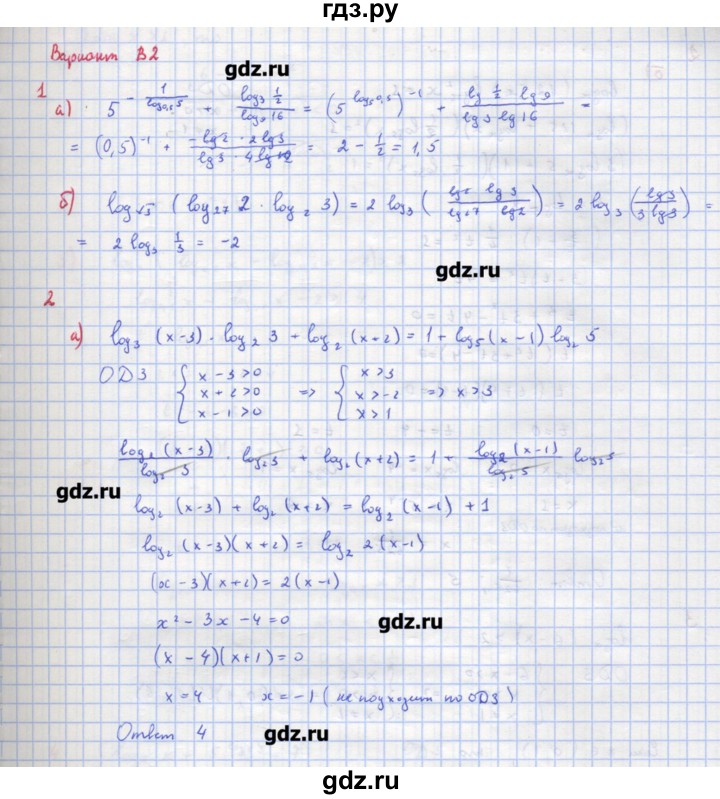 гдз.ру
Вариант В2
gdz.ru
1
а) 5^(-1/log_{0,5} 5) + log_3 1/2 / log_9 16 = (5^{log_5 0,5})^{-1} + lg 1/2 · lg 9 / lg 3 lg 16 =
= (0,5)^{-1} + -lg 2 · 2 lg 3 / lg 3 · 4 lg 2 = 2 - 1/2 = 1,5
б) log_{√3} (log_{27} 2 · log_2 3) = 2 log_3 (lg 2 lg 3 / lg 27 lg 2) = 2 log_3 (lg 3 / 3 lg 3) =
= 2 log_3 1/3 = -2
gdz.ru
2
а) log_3 (x-3) · log_2 3 + log_2 (x+2) = 1 + log_5 (x-1) log_2 5
ОДЗ { x-3>0 => { x>3
x+2>0 x>-2 => x>3
x-1>0 x>1
log_2 (x-3) / log_2 3 · log_2 3 + log_2 (x+2) = 1 + log_2 (x-1) / log_2 5 log_2 5
gdz.ru
log_2 (x-3) + log_2 (x+2) = log_2 (x-1) + 1
log_2 (x-3)(x+2) = log_2 2(x-1)
(x-3)(x+2) = 2(x-1)
x² - 3x - 4 = 0
gdz.ru
(x-4)(x+1) = 0
x = 4 x = -1 (не подходит по ОДЗ)
Ответ 4
gdz.ru
gdz.ru